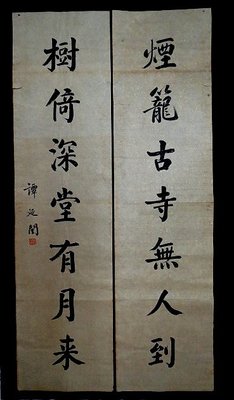 煙籠古寺無人到
樹倚深堂有月来
譚延闓